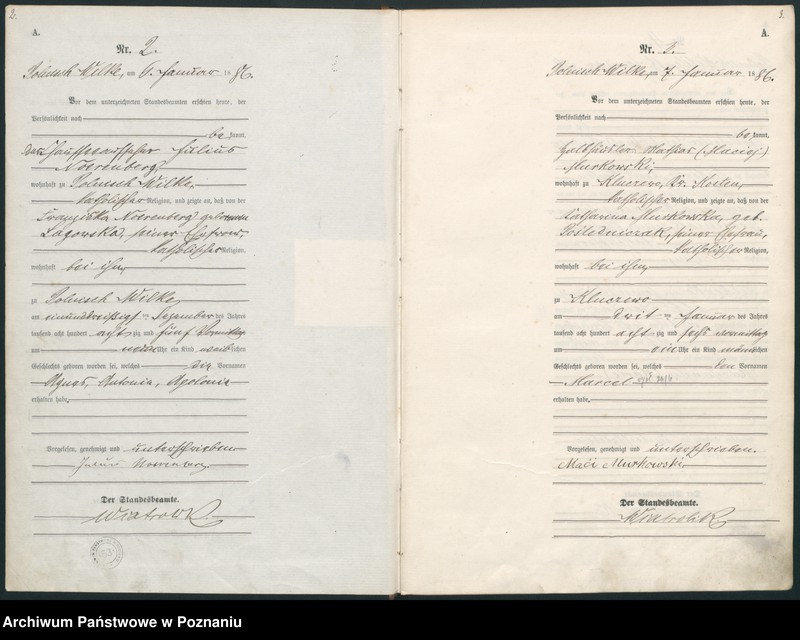 2.
A.
Nr. 2.
Polnisch Wilke, am 6. Januar 1886.
Vor dem unterzeichneten Standesbeamten erschien heute, der
Persönlichkeit nach
be kannt,
der Chausseeaufseher Julius
Noerenberg,
wohnhaft zu Polnisch Wilke,
katholischer Religion, und zeigte an, daß von der
Franziska Noerenberg geborenen
Lagowska, seiner Ehefrau,
katholischer Religion,
wohnhaft bei ihm,
zu Polnisch Wilke,
am einunddreißigsten Dezember des Jahres
tausend acht hundert achtzig und fünf Vormittags
um Uhr ein Kind weiblichen
Geschlechts geboren worden sei, welches die Vornamen
Agnes, Antonia, Apolonia
erhalten habe.
Vorgelesen, genehmigt und unterschrieben
Julius Noerenberg
Der Standesbeamte.
Wiatrolik
3.
A.
Nr. 3.
Polnisch Wilke, am 7. Januar 1886.
Vor dem unterzeichneten Standesbeamten erschien heute, der
Persönlichkeit nach
be kannt,
Mathias (Maciej)
Murkowski,
wohnhaft zu Kluczewo, Kr. Kosten,
katholischer Religion, und zeigte an, daß von der
Katharina Murkowska, geb.
Pośledniczak, seiner Ehefrau,
katholischer Religion,
wohnhaft bei ihm,
zu Kluczewo
am Januar des Jahres
tausend acht hundert achtzig und sechs Vormittags
um ein Uhr ein Kind männlichen
Geschlechts geboren worden sei, welches den Vornamen
Marcel
erhalten habe.
Vorgelesen, genehmigt und unterschrieben.
Maci Murkowski
Der Standesbeamte.
Wiatrolik
Archiwum Państwowe w Poznaniu